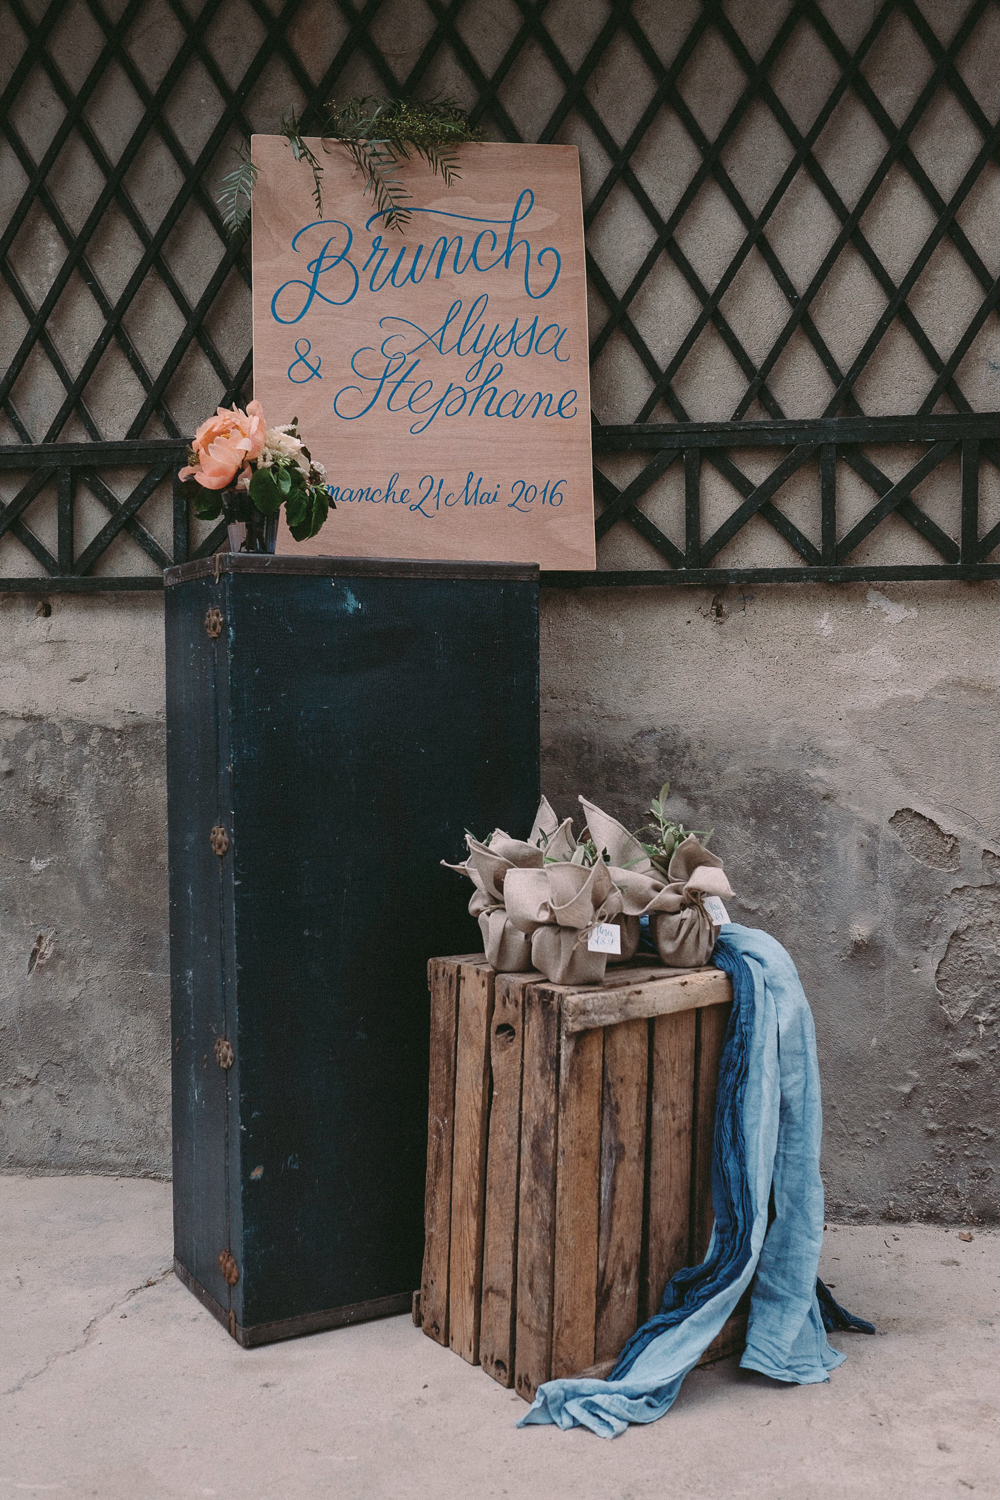 Brunch
Alyssa
& Stephane
manche 21 Mai 2016